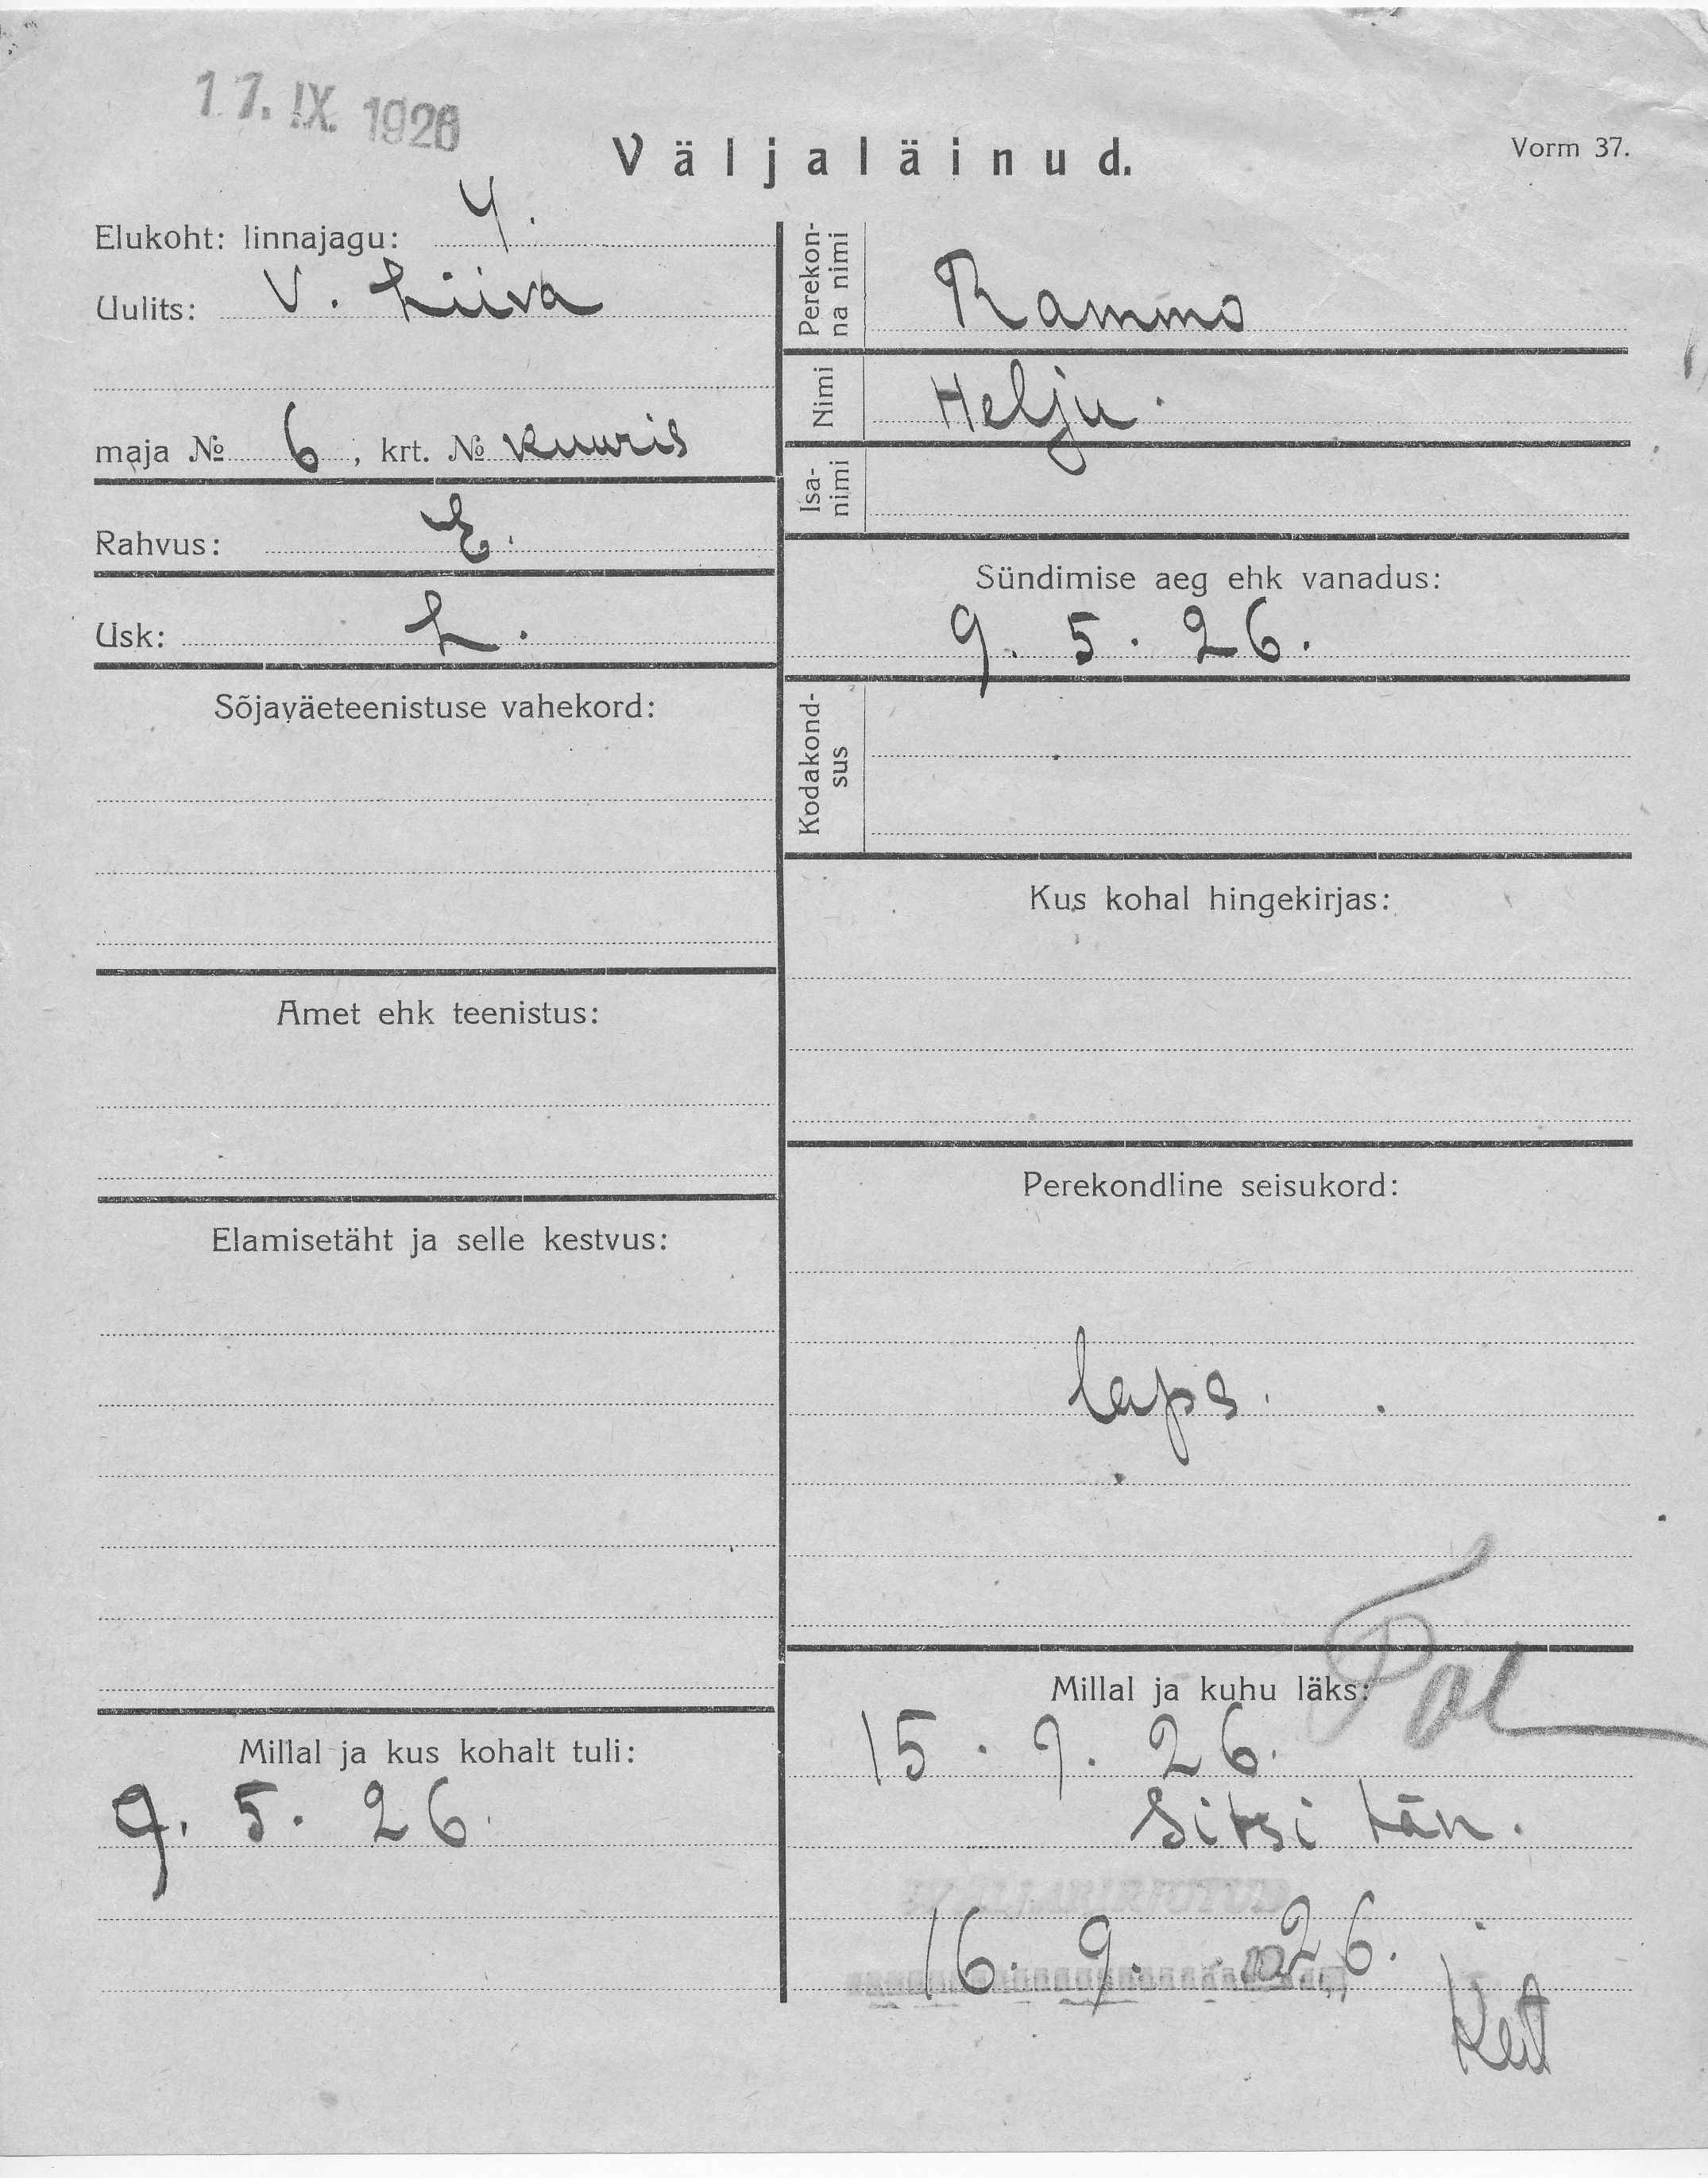 17. IX. 1926
Väljaläinud.
Vorm 37.
Elukoht: linnajagu: 4.
Uulits: V. Liiva
maja № 6, krt. № kuuris
Rahvus: E.
Usk: L.
Sõjaväeteenistuse vahekord:
Amet ehk teenistus:
Elamisetäht ja selle kestvus:
Millal ja kus kohalt tuli:
9. 5. 26.
Perekon-
na nimi
Rammo
Nimi
Helju.
Isa-
nimi
Sündimise aeg ehk vanadus:
9. 5. 26.
Kodakond-
sus
Kus kohal hingekirjas:
Perekondline seisukord:
laps.
Millal ja kuhu läks:
15. 9. 26.
Sitsi tän.
VÄLJAKIRJUTUD
16. 9. 26.